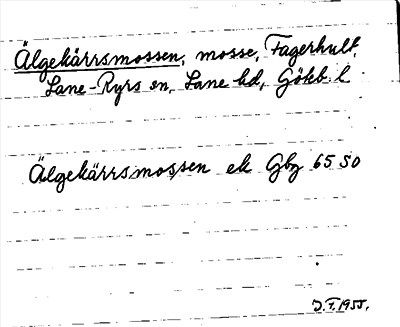 Älgekärrsmossen, mosse, Fagerhult,
Lane-Ryrs sn, Lane hd, Göteb. l
Älgekärrsmossen ek Gbg 65 SO
J.F. 1955.